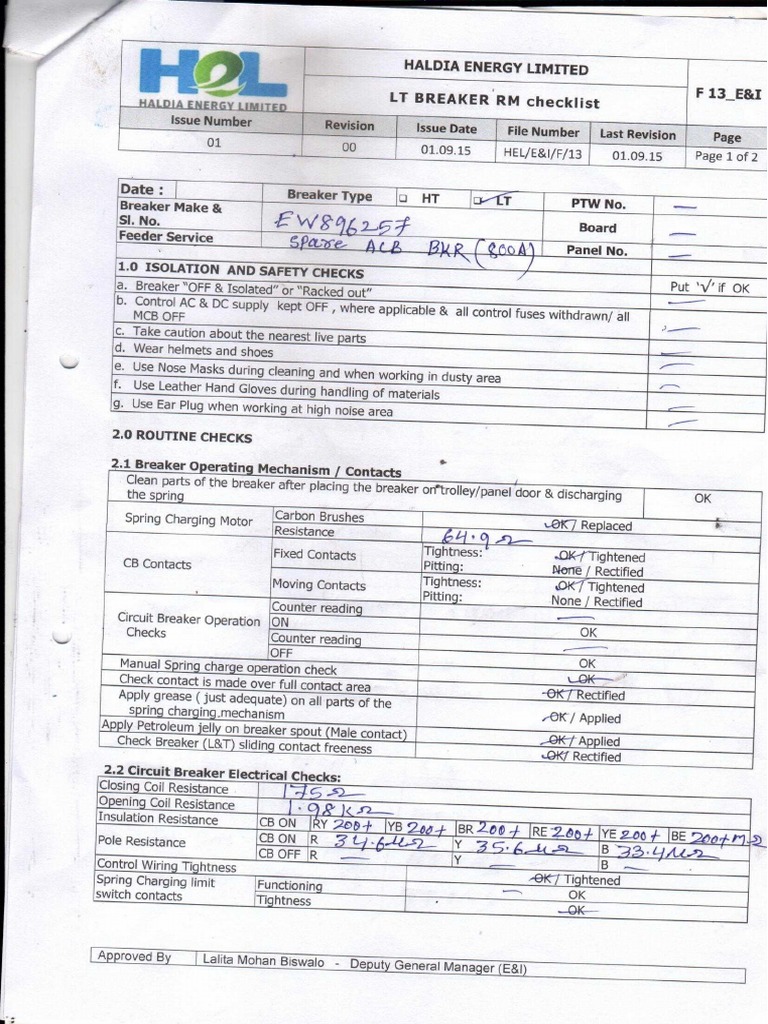 HEL
HALDIA ENERGY LIMITED
HALDIA ENERGY LIMITED
LT BREAKER RM checklist
F 13_E&I
Issue Number Revision Issue Date File Number Last Revision Page
01 00 01.09.15 HEL/E&I/F/13 01.09.15 Page 1 of 2
Date : Breaker Type HT LT PTW No. —
Breaker Make & Sl. No. EW896257 Board —
Feeder Service Spare ACB BKR (800A) Panel No. —
1.0 ISOLATION AND SAFETY CHECKS
a. Breaker "OFF & Isolated" or "Racked out" Put '√' if OK
b. Control AC & DC supply kept OFF , where applicable & all control fuses withdrawn/ all
MCB OFF
c. Take caution about the nearest live parts
d. Wear helmets and shoes
e. Use Nose Masks during cleaning and when working in dusty area
f. Use Leather Hand Gloves during handling of materials
g. Use Ear Plug when working at high noise area
2.0 ROUTINE CHECKS
2.1 Breaker Operating Mechanism / Contacts
Clean parts of the breaker after placing the breaker on trolley/panel door & discharging
the spring OK
Spring Charging Motor Carbon Brushes OK / Replaced
Resistance 64.9Ω
CB Contacts Fixed Contacts Tightness: OK / Tightened
Pitting: None / Rectified
Moving Contacts Tightness: OK / Tightened
Pitting: None / Rectified
Circuit Breaker Operation
Checks
Counter reading —
ON OK
Counter reading —
OFF OK
Manual Spring charge operation check OK
Check contact is made over full contact area OK / Rectified
Apply grease ( just adequate) on all parts of the
spring charging mechanism OK / Applied
Apply Petroleum jelly on breaker spout (Male contact) OK / Applied
Check Breaker (L&T) sliding contact freeness OK / Rectified
2.2 Circuit Breaker Electrical Checks:
Closing Coil Resistance 175Ω
Opening Coil Resistance 1.98KΩ
Insulation Resistance CB ON RY 200+ YB 200+ BR 200+ RE 200+ YE 200+ BE 200+M-Ω
Pole Resistance CB ON R 34.6μΩ Y 35.6μΩ B 33.4μΩ
CB OFF R — Y — B —
Control Wiring Tightness OK / Tightened
Spring Charging limit
switch contacts
Functioning — OK
Tightness OK
Approved By Lalita Mohan Biswalo - Deputy General Manager (E&I)